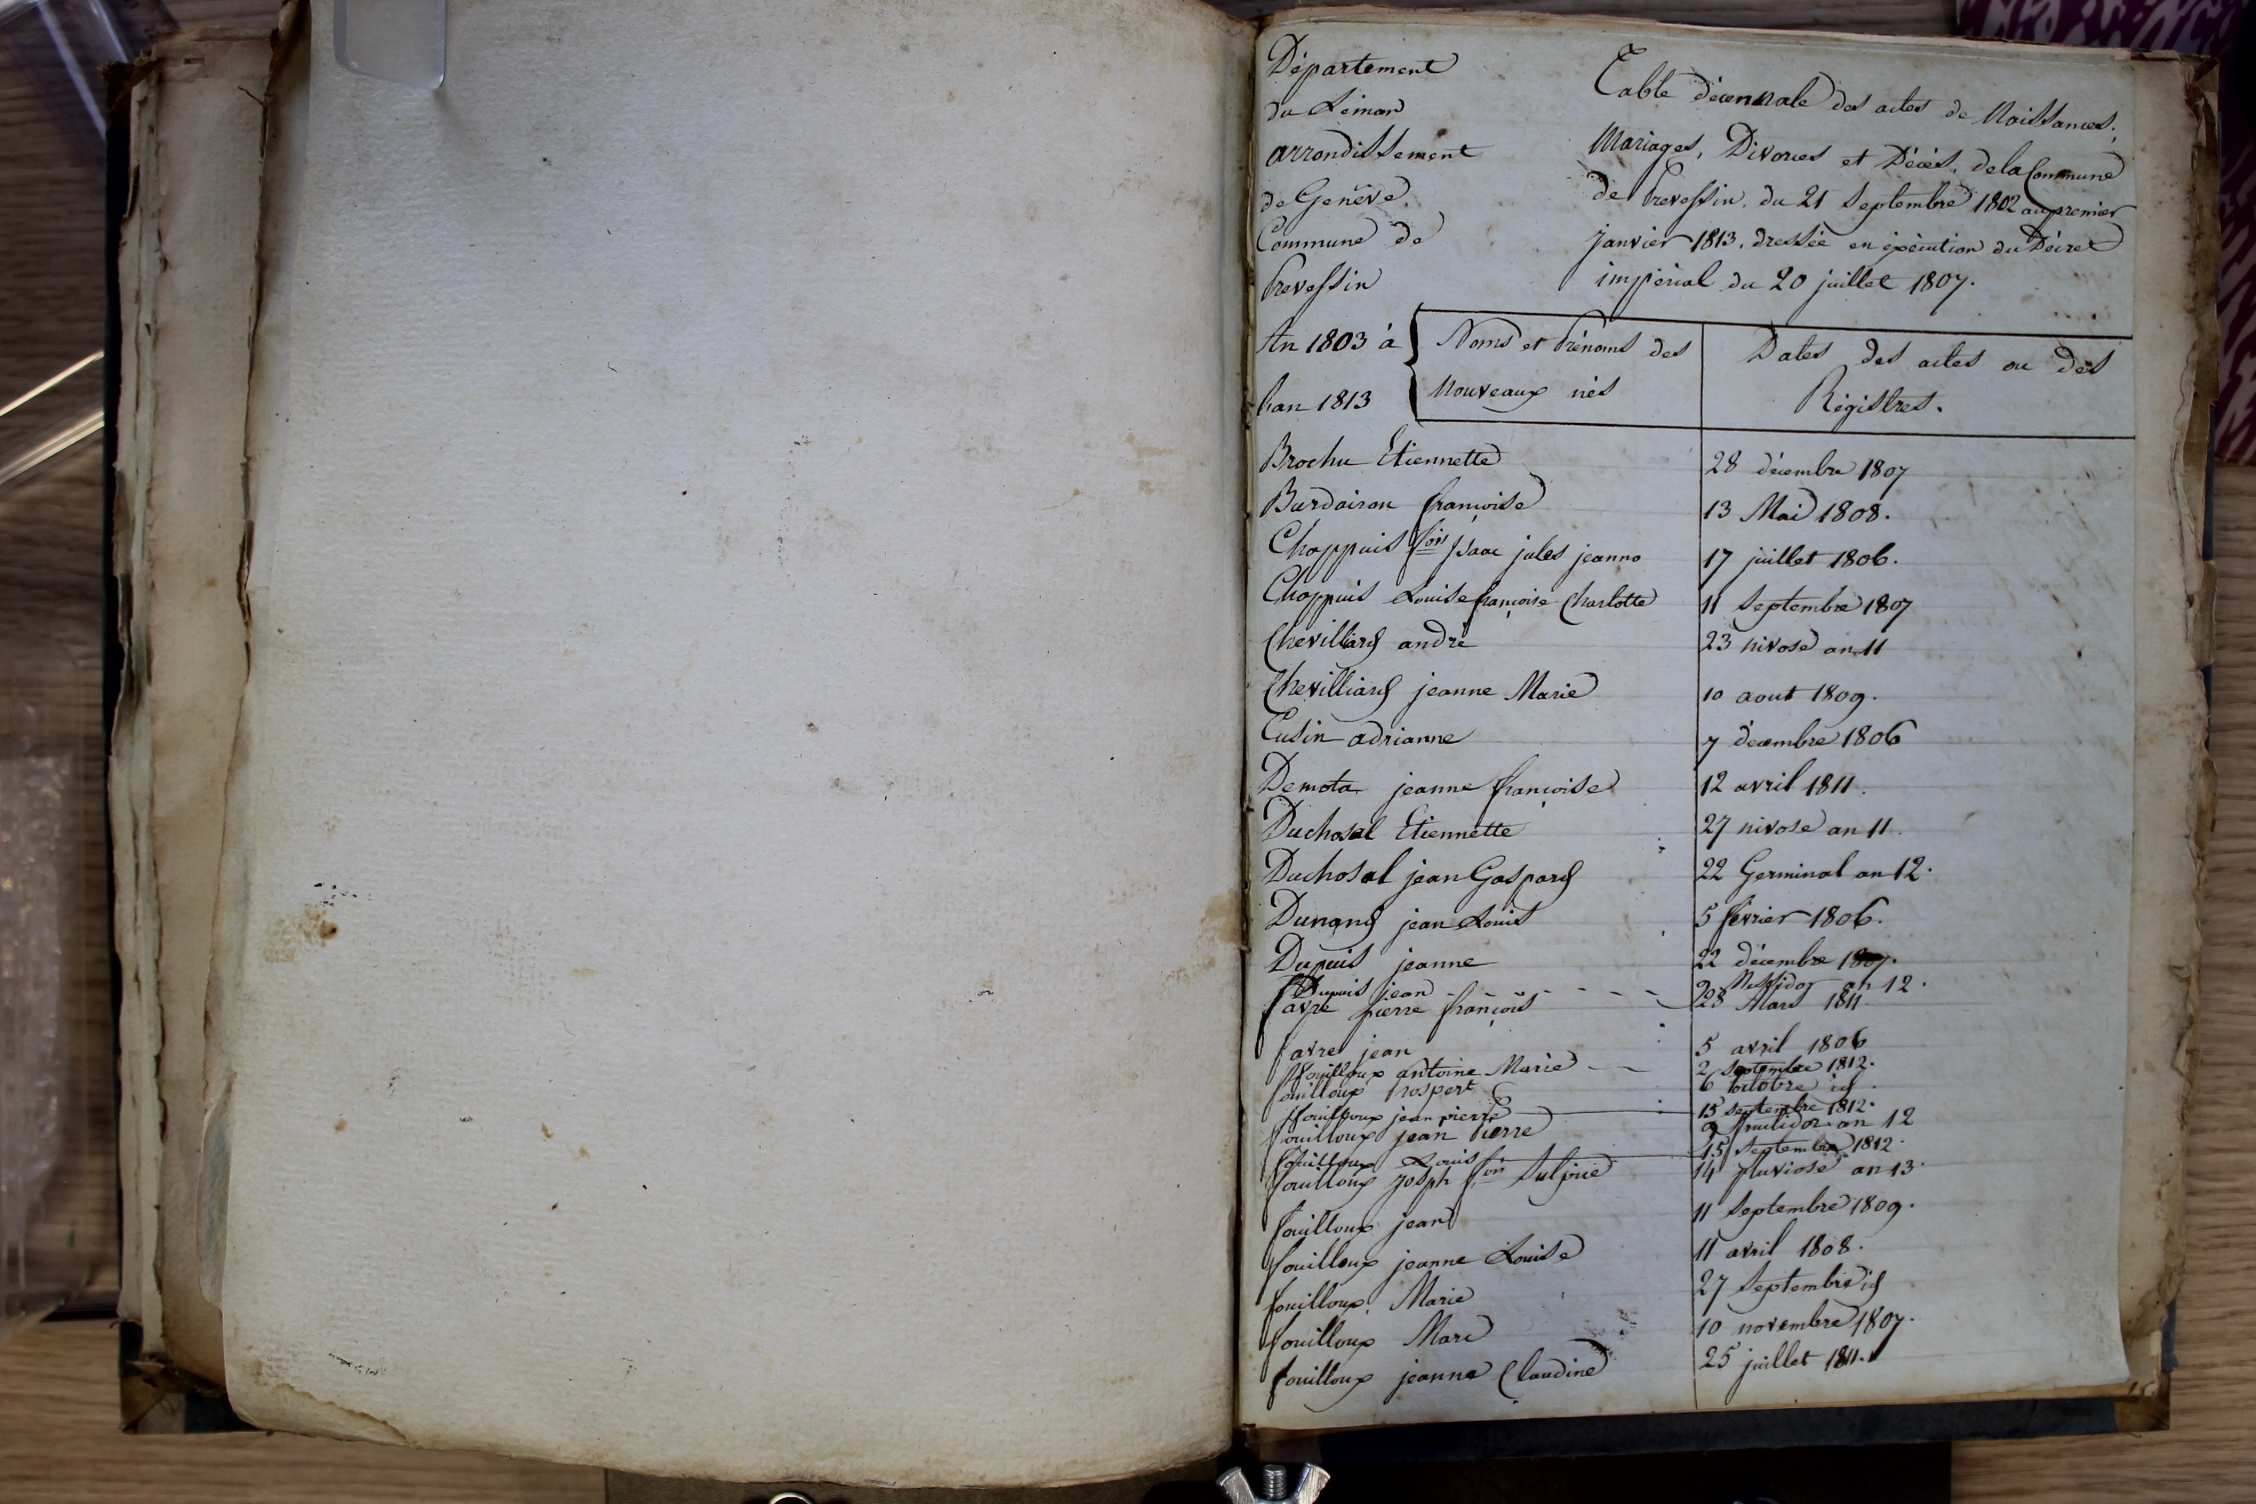 Département
du Léman
arrondissement
de Genève.
Commune de
Prevessin
Table décennale des actes de Naissances,
Mariages, Divorces et Décès, de la Commune
de Prevessin. du 21 Septembre 1802 au premier
janvier 1813. dressée en éxécution du Décret
impérial du 20 juillet 1807.
An 1803 à
l'an 1813
Noms et Prénoms des
Nouveaux nés
Dates des actes ou des
Régistres.
Brochu Etiennette 28 décembre 1807
Burdairon françoise 13 Mai 1808.
Chappuis fois Isaac jules jeanno 17 juillet 1806.
Chappuis Louise françoise Charlotte 11 Septembre 1807
Chevilliard andré 23 nivose an 11
Chevilliard jeanne Marie 10 aout 1809.
Cusin adrianne 7 décembre 1806
Demota jeanne françoise 12 avril 1811.
Duchosal Etiennette 27 nivose an 11.
Duchosal jean Gaspard 22 Germinal an 12.
Dunand jean Louis 5 février 1806.
Dupuis jeanne 22 décembre 1807.
Dupuis jean Messidor an 12.
favre pierre françois 28 Mars 1811
favre jean 5 avril 1806
fouilloux antoine Marie 2 Septembre 1812.
fouilloux Prospert 6 octobre id.
fouilloux jean pierre 15 septembre 1812.
fouilloux jean Pierre 9 fructidor an 12
fouilloux Louis 15 Septembre 1812.
fouilloux Josph fois Sulpice 14 pluviose an 13.
fouilloux jean 11 Septembre 1809.
fouilloux jeanne Louise 11 avril 1808.
fouilloux Marie 27 Septembre id
fouilloux Marc 10 novembre 1807.
fouilloux jeanne Claudine 25 juillet 1811.